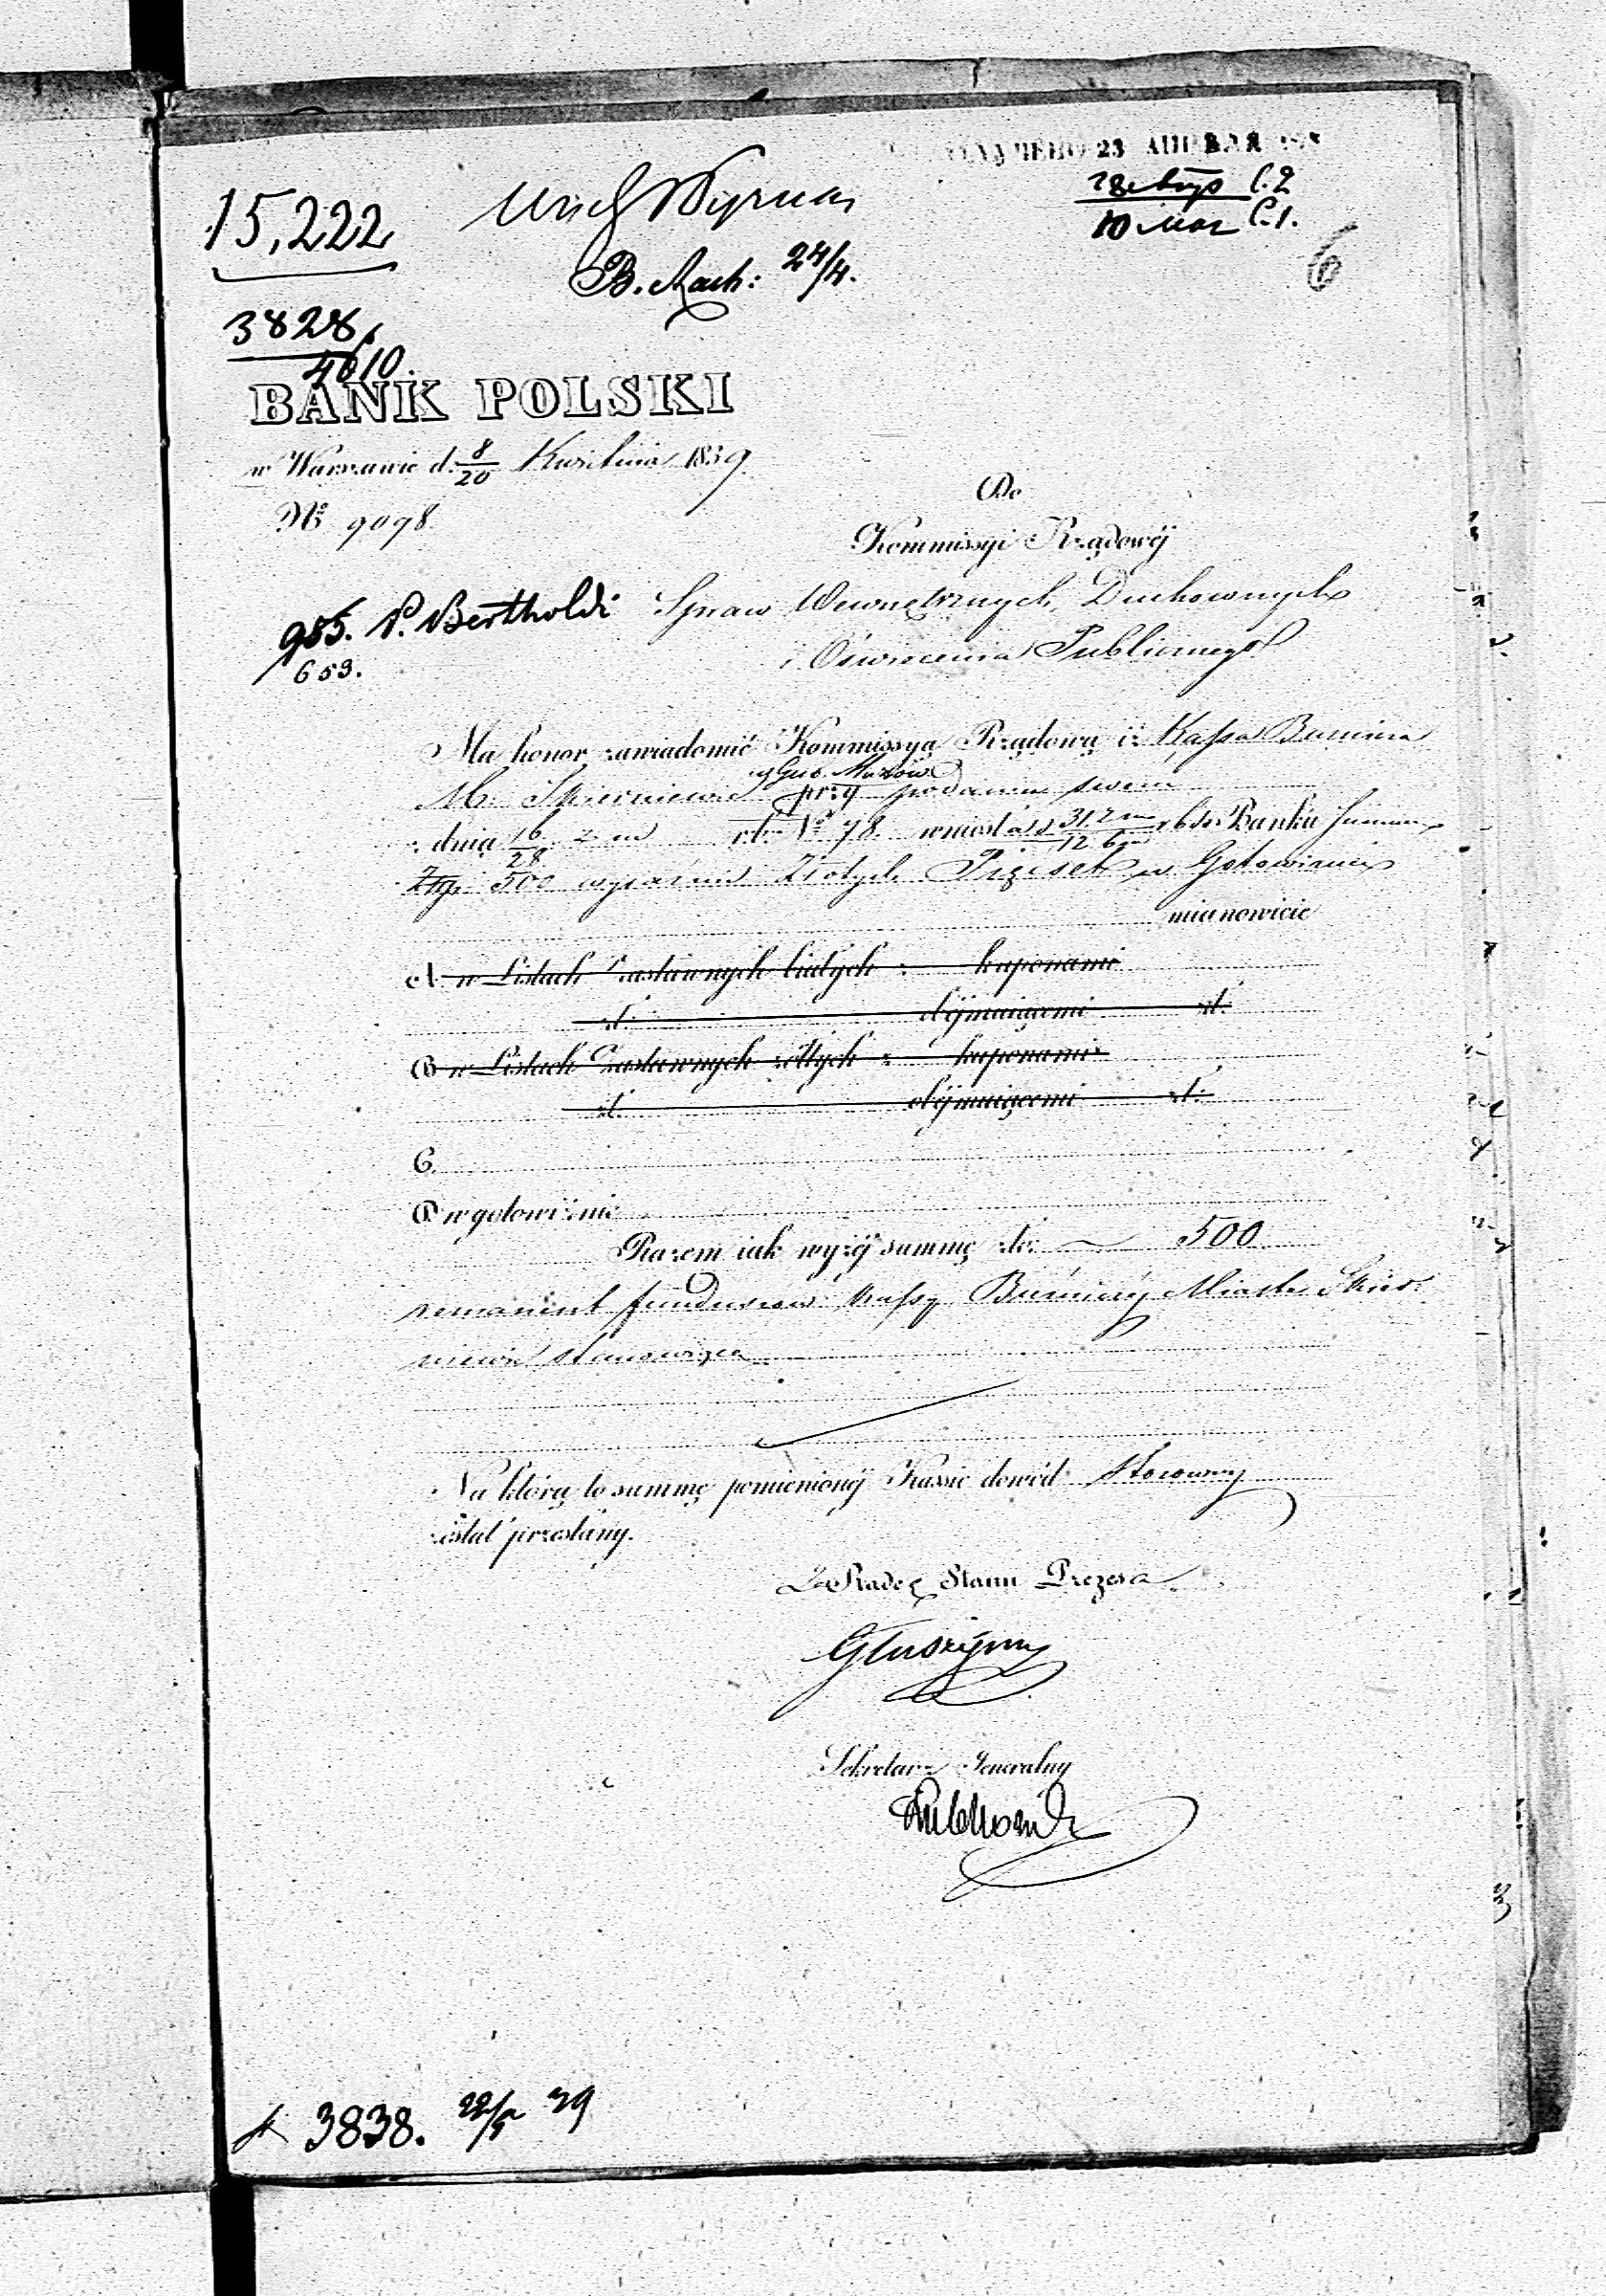 23 АПРѢЛЯ
15,222
B. Rach: 24/4.
6
3828
4010.
BANK POLSKI
w Warszawie d. 8/20 Kwietnia 1839.
№ 9098.
Do
Kommissyi Rządowéj
985. P. Bertholdi Spraw Wewnętrznych, Duchownych
659.
i Oświecenia Publicznego
Ma honor zawiadomić Kommissyą Rządową iż Kassa Buczna
g Gub. Mazow.
M. Skierniewic przy podaniu swem
z dnia 16/28 z m r. b. № 78. wniosła d. 31.2/12 b do Banku summę
Złp. 500 wyraźnie Złotych Pięćset w Gotowiźnie
mianowicie
A w Listach Zastawnych białych z kuponami
zł. odejmującemi zł.
B w Listach Zastawnych żółtych z kuponami
zł. odejmującemi zł.
C.
D w gotowiźnie
Razem iak wyżéj summę złr. 500
remanent funduszów kassy Miasta Skier-
niewic stanowiącą
Na którą to summę pomienionéj Kassie dowód stosowny
został przesłany.
Za Radcę Stanu Prezesa
Głuszyński
Sekretarz Generalny
3838. 22/4 39